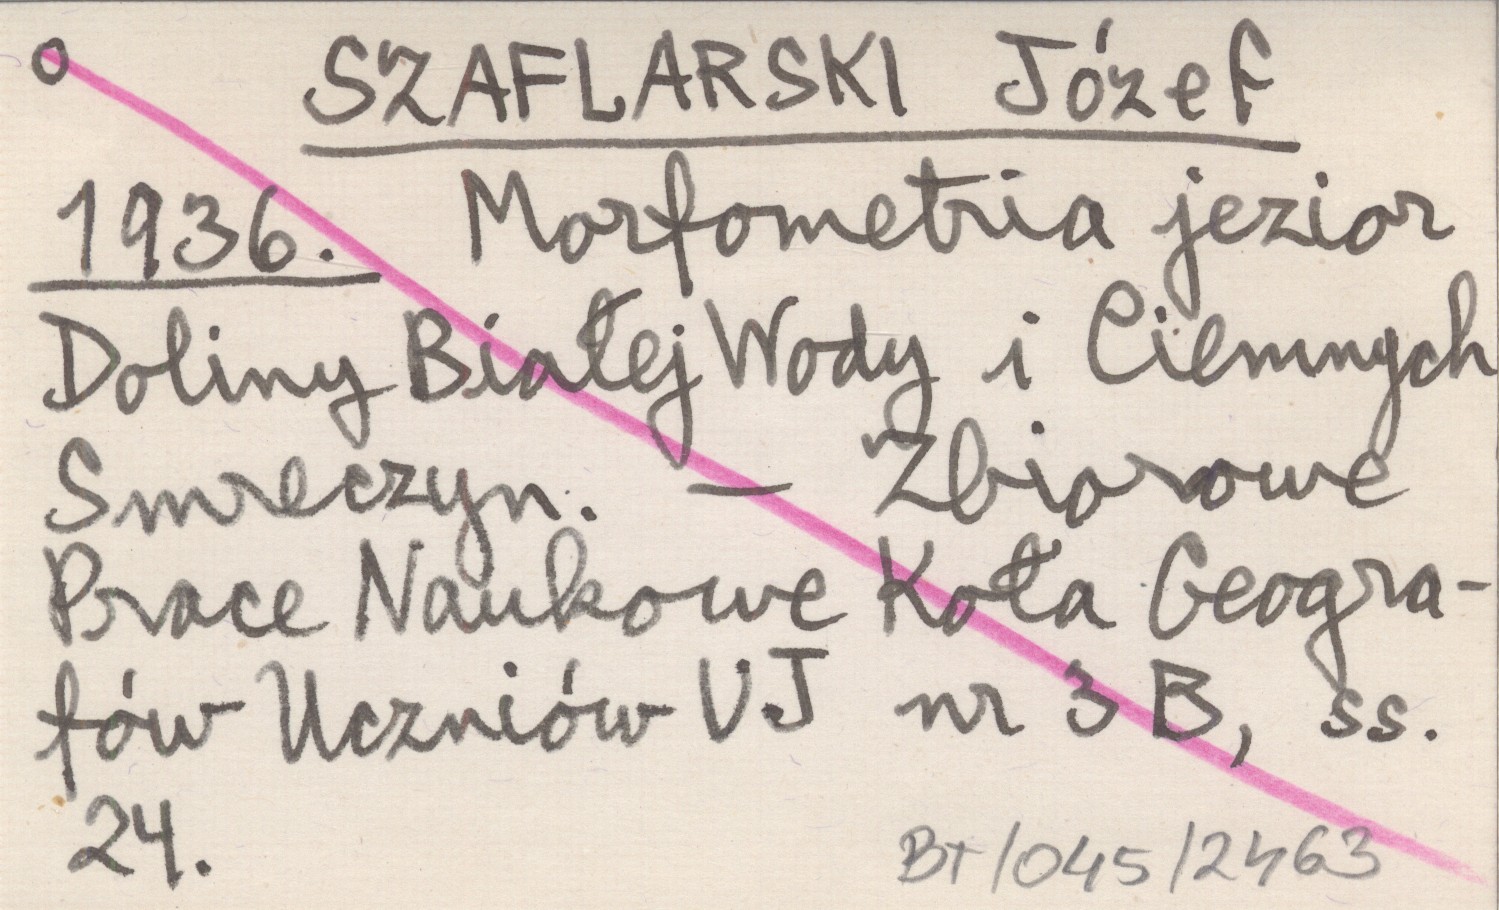 SZAFLARSKI Józef
1936. Morfometria jezior
Doliny Białej Wody i Ciemnych
Smreczyn. — Zbiorowe
Prace Naukowe Koła Geogra-
fów Uczniów UJ nr 3 B, ss.
24.
BT/045/2463